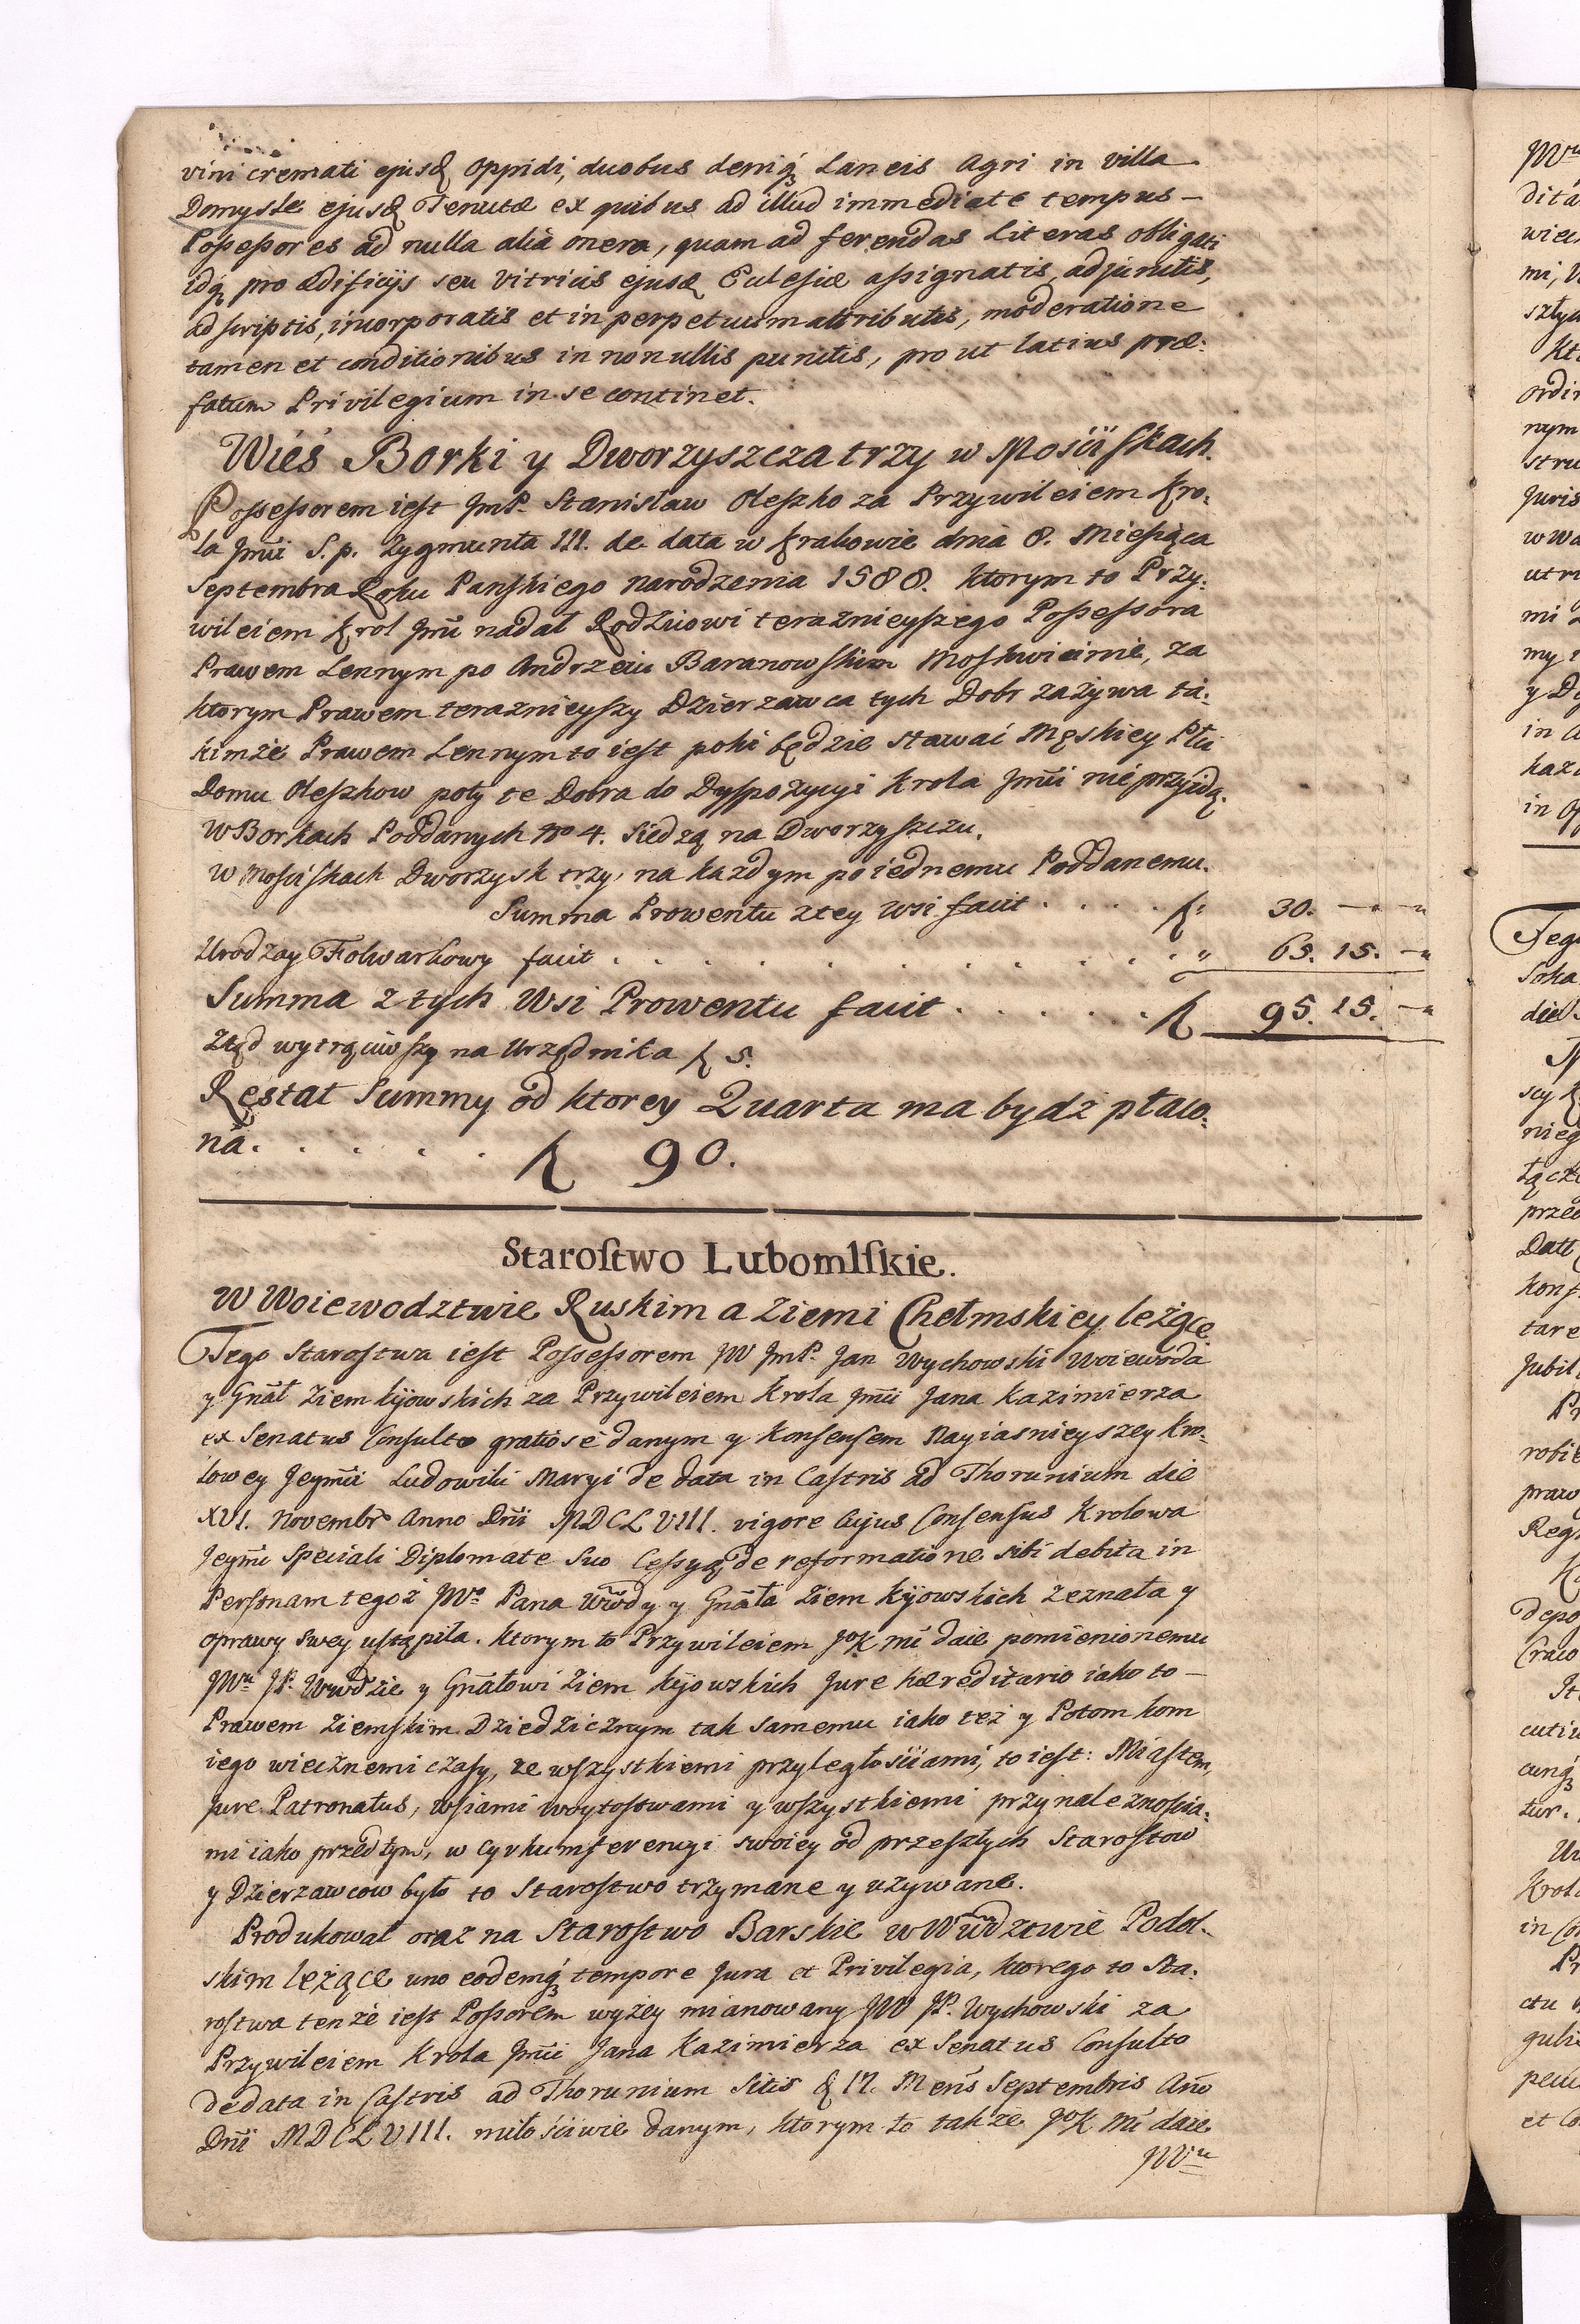 vini cremati ejusd Oppidi, duobus deniq Laneis Agri in villa
Domysle ejusd Tenutæ ex quibus ad illud immediate tempus –
Poſseſsores ad nulla alia onera, quam ad ferendas Literas obligati
idq pro ædificijs seu Vitricis ejusd Ecclesiæ aſsignatis, adjunctis,
adscriptis, incorporatis et in perpetuum attributis, moderatione
tamen et conditionibus in nonullis punctis, prout latius præ:
fatum Privilegium in se continet.
Wieś Borki y Dworzyszcza trzy w Mościſkach.
Poſseſsorem ieſt JmP. Stanisław Oleszko za Przywileiem Kro:
la Jmci S. p. Zygmunta III. de data w Krakowie dnia 8. Mieſiąca
Septembra Roku Panſkiego narodzenia 1588. ktorym to Przy:
wileiem Krol Jmć nadał Rodzicowi teraznieyſzego Poſseſsora
Prawem Lennym po Andrzeiu Baranowſkim Moſkwicinie, za
ktorym Prawem teraznieyſzy Dzierzawca tych Dobr zażywa ta:
kimże Prawem Lennym to ieſt poki będzie stawać Męskiey Płci
Domu Oleszkow poty te Dobra do Dyſpozycyi Krola Jmci nie przyidą.
W Borkach Poddanych No 4. siedzą na Dworzyſzczu.
w Mościſkach Dworzysk trzy, na każdym po iednemu Poddanemu.
Summa Prowentu z tey Wsi facit . . . . f: 30. — „ — „
Urodzay Folwarkowy facit . . . . . . . . . . „ 65. 15. — „
Summa z tych Wsi Prowentu facit . . . . . . f 95. 15. — „
Ztąd wytrąciwſzy na Urzędnika f 5.
Restat Summy od ktorey Quarta ma bydź płaco:
na. . . . . . f 90.
Staroſtwo Lubomlſkie.
W Woiewodztwie Ruskim a Ziemi Chełmskiey leżące
Tego Staroſtwa ieſt Poſseſsorem JW JmP. Jan Wychowski Woiewoda
y Gnał Ziem kijowskich za Przywileiem Krola Jmci Jana Kazimierza
ex Senatus Consulto gratiose danym y Konſenſem Nayiasnieyszey Kro:
lowey Jeymci Ludowiki Maryi de data in Caſtris ad Thorunium die
XVI. Novembr Anno Dni MDCLVIII. vigore cujus Conſenſus Krolowa
Jeymć Speciali Diplomate suo Ceſsyą de reformatione sibi debita in
Perſonam tegoż JWo Pana Wwdy y Gnała Ziem Kijowskich zeznała y
oprawy swey uſtąpiła. ktorym to Przywileiem JoK mć daie pomienionemu
JWu JP. Wwdzie y Gnałowi Ziem Kijowskich Jure hæreditario iako to –
Prawem Ziemſkim Dziedzicznym tak samemu iako też y Potomkom
iego wiecznemi czaſy, ze wſzystkiemi przyległościami, to ieſt: Miaſtem,
jure Patronatus, wſiami woytostwami y wſzystkiemi przynależnoſcia:
mi iako przedtym, w cyrkumferencyi swoiey od przeszłych Staroſtow
y Dzierzawcow było to Staroſtwo trzymane y używane.
Produkował oraz na Staroſtwo Barskie w Wwdztwie Podol:
skim leżące uno eodemq tempore Jura et Privilegia, ktorego to Sta:
roſtwa tenże ieſt Poſsorem wyżey mianowany JW JP. Wychowski za
Przywileiem Krola Jmci Jana Kazimierza ex Senatus Consulto
de data in Caſtris ad Thorunium Sitis d 17. Mens Septembris Ano
Dni MDCLVIII. miłościwie danym, ktorym to także JoK Mć daie
JWu